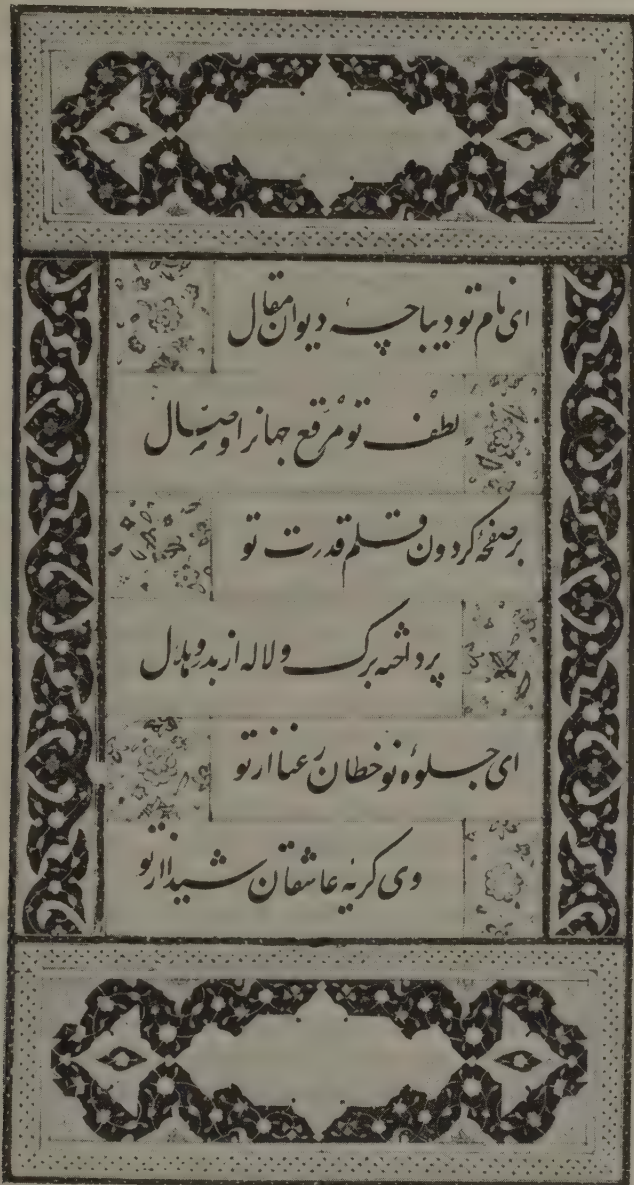 ای نام تو دیباچهٔ دیوان مقال
لطف تو مرقع جهانرا وصال
بر صفحهٔ کردون قلم قدرت تو
پرداخته برک و لاله از بدر و هلال
ای جلوهٔ نوخطان رعنا از تو
وی کریهٔ عاشقان شیدا از تو